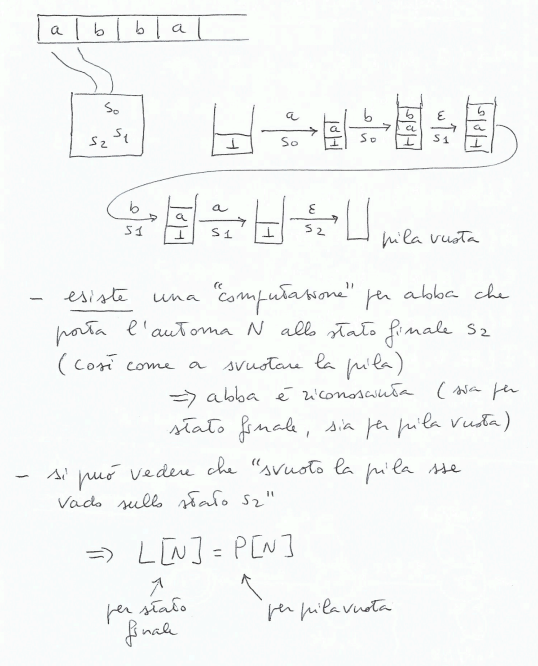 a | b | b | a |
S0
S2 S1
⊥ a S0 a ⊥ b S0 b a ⊥ ε S1 b a ⊥
b S1 a ⊥ a S1 ⊥ ε S2 pila vuota
- esiste una "computazione" per abba che
porta l'automa N allo stato finale S2
(così come a svuotare la pila)
=> abba è riconosciuta (sia per
stato finale, sia per pila vuota)
- si può vedere che "svuoto la pila sse
vado sullo stato S2"
=> L[N] = P[N]
per stato
finale
per pila vuota